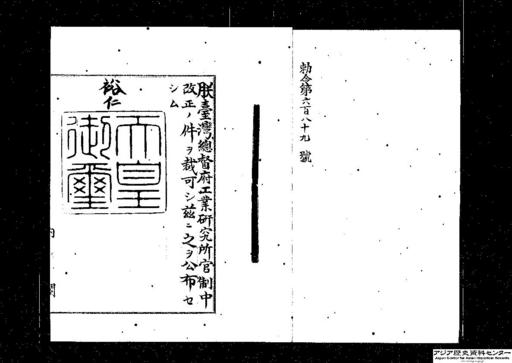 勅令第六百八十九號
朕臺灣總督府工業研究所官制中
改正ノ件ヲ裁可シ茲ニ之ヲ公布セ
シム
裕仁
天皇
御璽
内閣
アジア歴史資料センター
Japan Center for Asian Historical Records